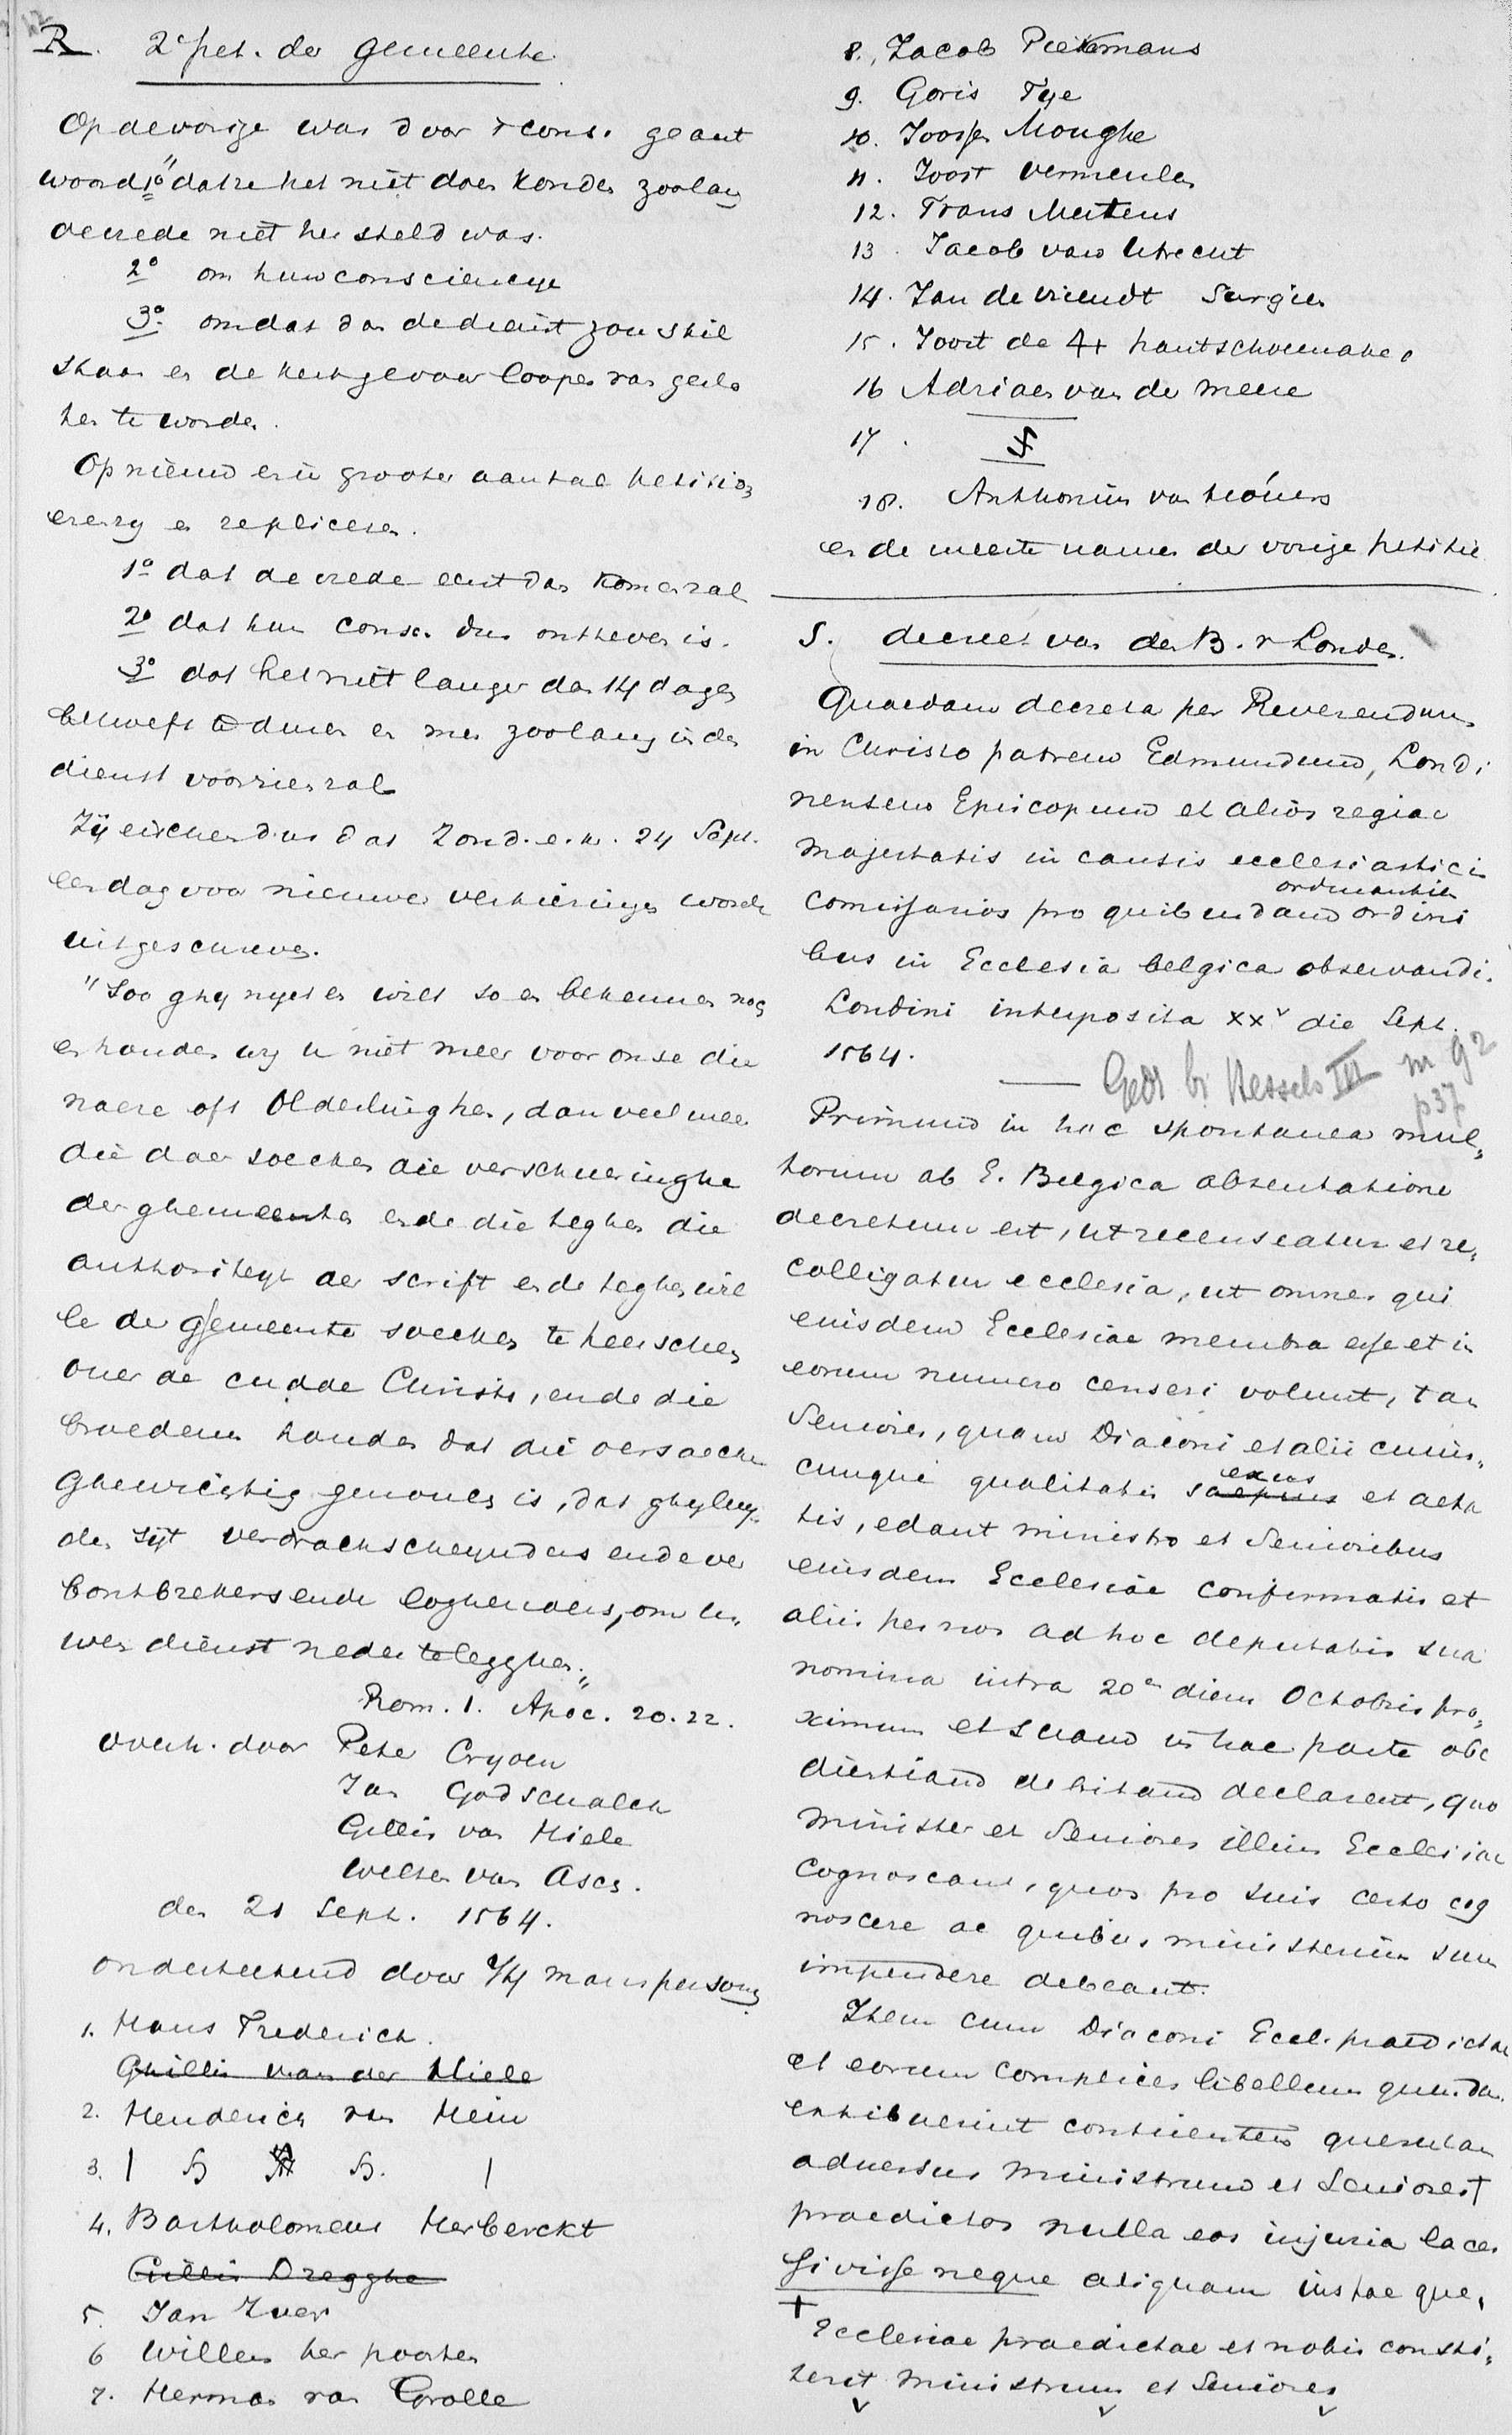 R. 2e pet. der gemeente.
Op de vorige was door d cons. geant
woord, 1o "dat ze het niet doen konden zoolang
de vrede niet hersteld was.
2o om hun consciencye
3o omdat dan de dienst zou stil
staan en de kerk gevaar loopen van geslo
ten te worden.
Opnieuw en in grooter aantal petitio,
eren zy en repliceren.
1o dat de vrede eerst dan komen zal
2o dat hun consc. dus ontheven is.
3o dat het niet langer dan 14 dagen
behoeft te duren en men zoolang in den
dienst voorzien zal
Zij eischen dus dat Zond. e.k. 24 Sept.
een dag voor nieuwe verkiezingen worde
uitgeschreven.
"Soo ghy nyet en wilt so en bekennen noch
en houden wy u niet meer voor onse die
naers oft Olderlinghen, dan veel meer
die daer soecken die verschueringhe
der ghemeenten ende die teghen die
authoriteyt der scrift ende teghen wil
le der ghemeente soecken te heerschen
over de cudde Christi, ende die
broederen houden dat die oersaecke
ghewichtig genouch is, dat ghyluy,
den sijt verdrachscheynders ende ver
bontbrekers ende loghenaers, om u
wen dienst neder te legghen."
Rom. 1. Apoc. 20. 22.
overh. door Peter Cryoen
Jan Godschalck
Gillis van Hiele
Wilhem van Asch.
den 21 Sept. 1564.
onderteekend door 74 manspersonen
1. Hans Frederich.
Ghillis van der Hiele
2. Henderick van Hein
3.
4. Bartholomeus Herberckt
Gillis Dregghe
5. Jan Zuer
6 Willem ter poorten
7. Herman van Grolle
8. Jacob Pietermans
9. Goris Tye
10. Joosse Monghe
11. Joost Vermeulen
12. Frans Mertens
13. Jacob van Utrecht
14. Jan de vriendt Surgien
15. Joost de 4+ hantschoenmaker
16 Adriaen van de Meere
17.
18. Anthonius van
en de meeste namen der vorige petitie
S. decreet van den B. v Londen.
Quaedam decreta per Reverendum
in Christo patrem Edmundum, Londi
nensem Episcopum et alios regiae
Majestatis in causis ecclesiasticis
ordinantiis
Comissarios pro quibusdam ordini
bus in Ecclesia belgica observandi.
Londini interposita XXV die Sept.
1564.
Gedr bij Hessels III nr 92
p37
Primum in hac spontanea mul,
torum ab E. Belgica absentatione
decretum est, ut recenseatur et re,
colligatur ecclesia, ut omnes qui
eiusdem Ecclesiae membra esse et in
eorum numero censeri volunt, tam
Seniores, quam Diaconi et alii cuius,
exus
cunque qualitatis saepius et aeta
tis, edant ministro et Senioribus
eiusdem Ecclesiae confirmatis et
aliis per nos ad hoc deputatis sua
nomina intra 20m diem Octobris pro,
ximum et suam in hac parte obe
dientiam debitam declarent, quo
Minister et Seniores illius Ecclesiae
Cognoscant, quos pro suis certo cog
noscere ac quibus ministerium suum
impendere debeant.
Item cum Diaconi Eccl. praedictae
et eorum complices libellum quendam
exhibuerint continentem querelam
adversus Ministrum et Seniores†
praedictos nulla eos injuria laces
sivisse neque aliquam iustae que,
† Ecclesiae praedictae et nobis consti,
terit Ministrum et Seniores